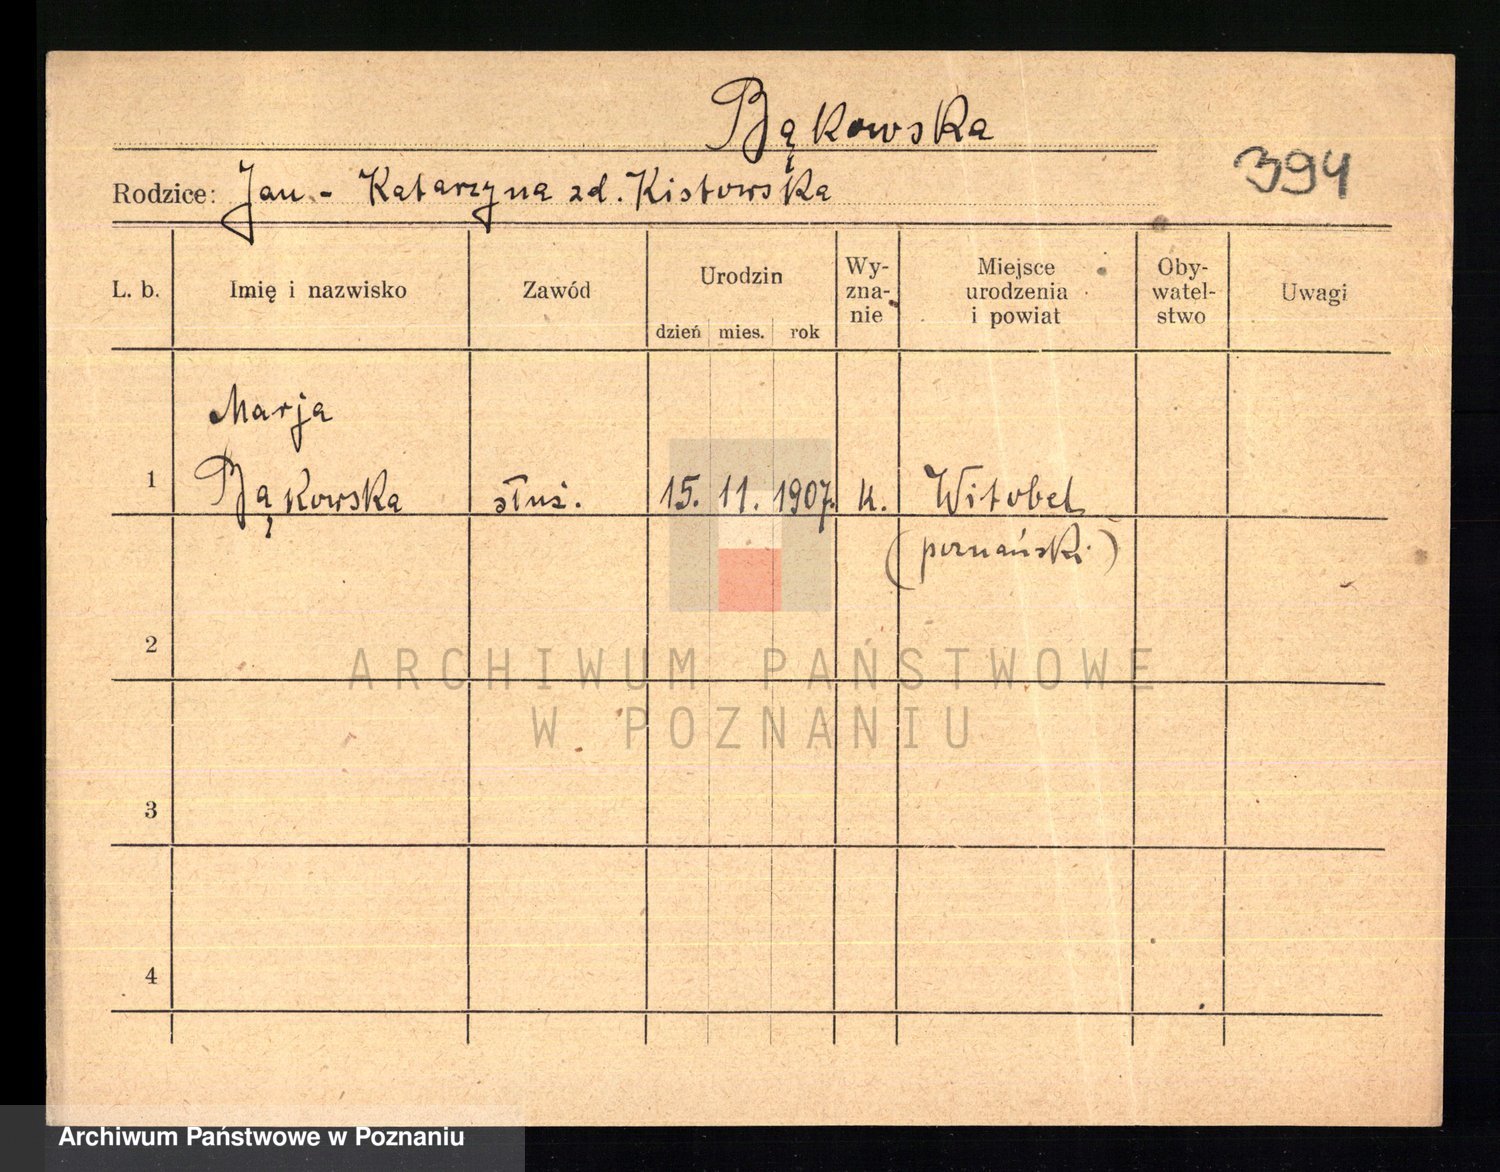 Bąkowska
394
Rodzice: Jan - Katarzyna zd. Kistowska
L. b. Imię i nazwisko Zawód Urodzin dzień mies. rok Wy-zna-nie Miejsce urodzenia i powiat Oby-watel-stwo Uwagi
Marja
1 Bąkowska służ. 15. 11. 1907. k. Witobel
(poznański)
2
ARCHIWUM PAŃSTWOWE
W POZNANIU
3
4
Archiwum Państwowe w Poznaniu